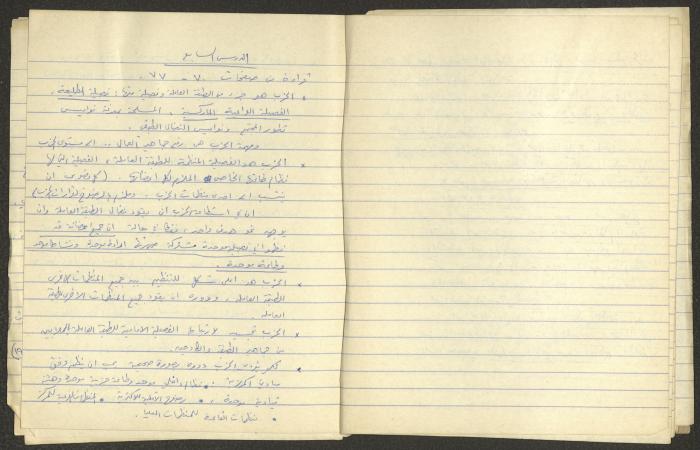 الدرس السابع
قراءة من صفحات ٧٠ - ٧٧.
× الحزب هو جزء من الطبقة العاملة وفصيلة منها: فصيلة الطليعة،
الفصيلة الواعية الماركسية، المسلحة بمعرفة نواميس
تطور المجتمع ونواميس النضال الطبقي.
ومهمة الحزب هي رفع جماهير العمال .. الى مستوى الحزب
× الحزب هو الفصيلة المنظمة للطبقة العاملة، الفصيلة التي لها
نظام طاعتها الخاص الملزم لكل اعضائها. (كل عضو
ينتسب الى احدى منظمات الحزب.
استطاعة الحزب ان يقود نضال الطبقة العاملة وان
يوجهه نحو هدف واحد، في حالة ان جميع اعضائه قد
نظموا في فصيلة موحدة مشتركة الارادة موحدة ونشاط موحد
وطاعة موحدة.
× الحزب هو اعلى شكل للتنظيم بين جميع المنظمات الاخرى
للطبقة العاملة، ودوره ان يقود جميع المنظمات الاخرى للطبقة
العاملة.
× الحزب تجسيد لارتباط الفصيلة الامامية للطبقة العاملة بالملايين
من جماهير الطبقة
× لكي يؤدي الحزب دوره بصورة صحيحة يجب ان ينظم وفق
مبادئ المركزية: نظام داخلي موحد وطاعة حزبية موحدة وهيئة
قيادية موحدة، خضوع الاقلية للاكثرية.
منظمات القاعدة للمنظمات العليا.